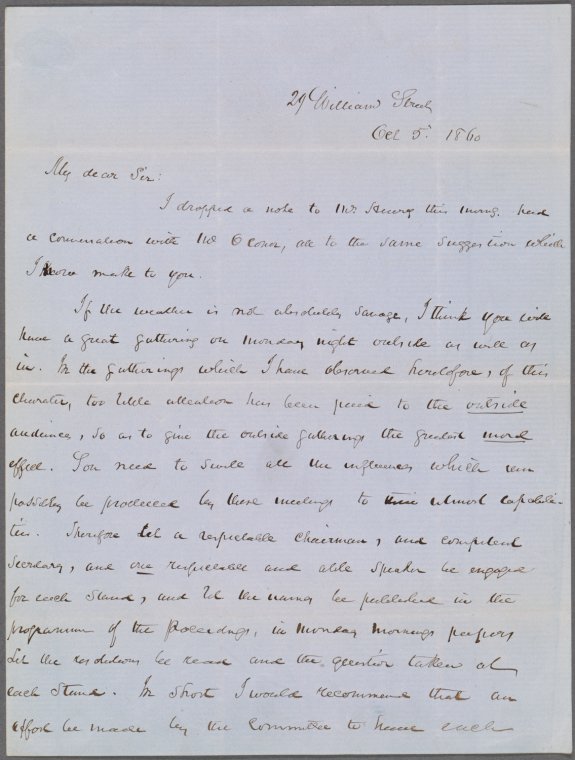 29 William Street
Oct 5. 1860
My dear Sir:
I dropped a note to Mr. this morng. had
a conversation with Mr O Conor, as to the same suggestion which
I now make to you.
If the weather is not absolutely savage, I think you will
have a great gathering on Monday night outside as well as
in. In the gatherings which I have observed heretofore, of this
character, too little attention has been paid to the outside
audience, so as to give the outside gatherings the greatest moral
effect. You need to swell all the influences which can
possibly be produced by these meetings to their utmost capabili-
ties. Therefore let a respectable chairman, and competent
Secretary, and one respectable and able Speaker be engaged
for each Stand, and let the names be published in the
programme of the proceedings, in Monday mornings papers
Let the resolutions be read and the question taken at
each Stand. In short I would recommend that an
effort be made by the Committee to have each